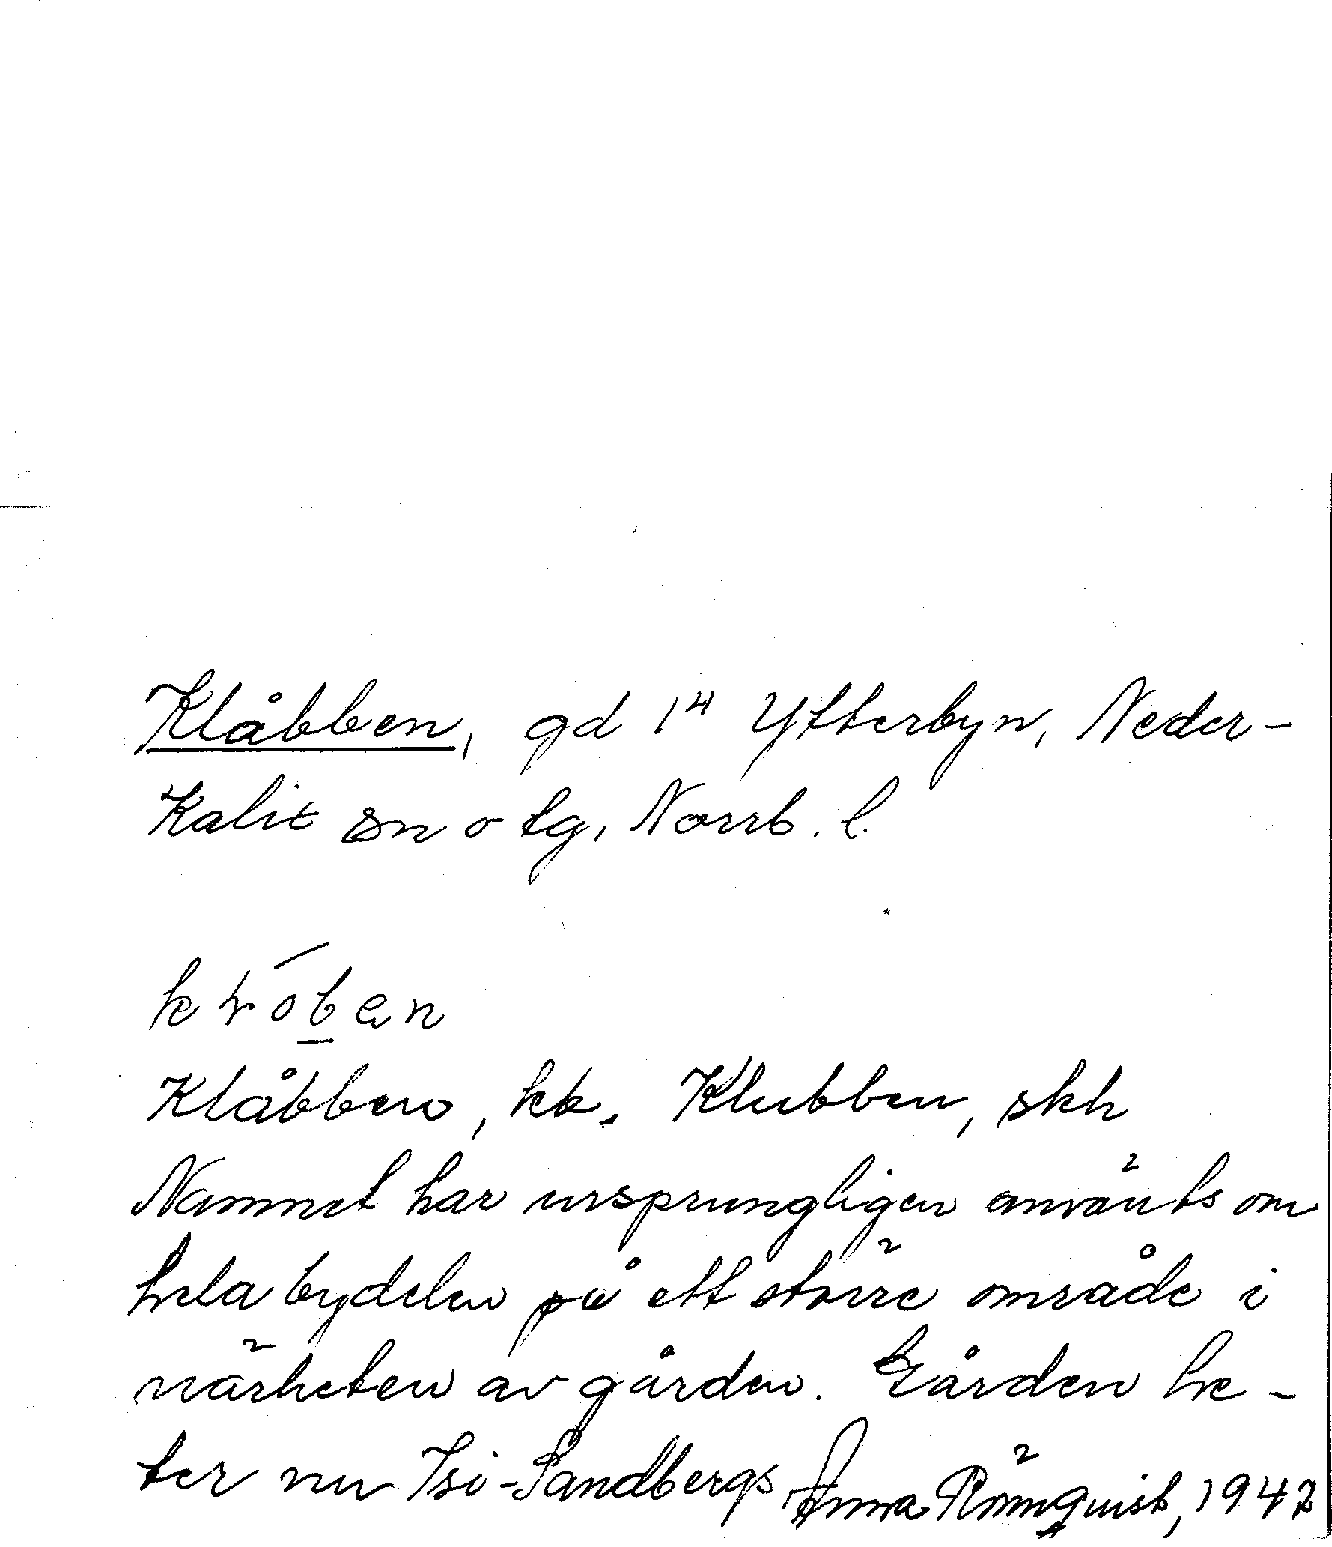 Klåbben, gd 1⁴ Ytterbyn, Neder-
Kalix sn o tg, Norrb. l.
Klåbben, kk. Klubben, skh
Namnet har ursprungligen använts om
hela bydelen på ett större område i
närheten av gården. Gården he-
ter nu Isi-Sandbergs Anna Rönnquist, 1947